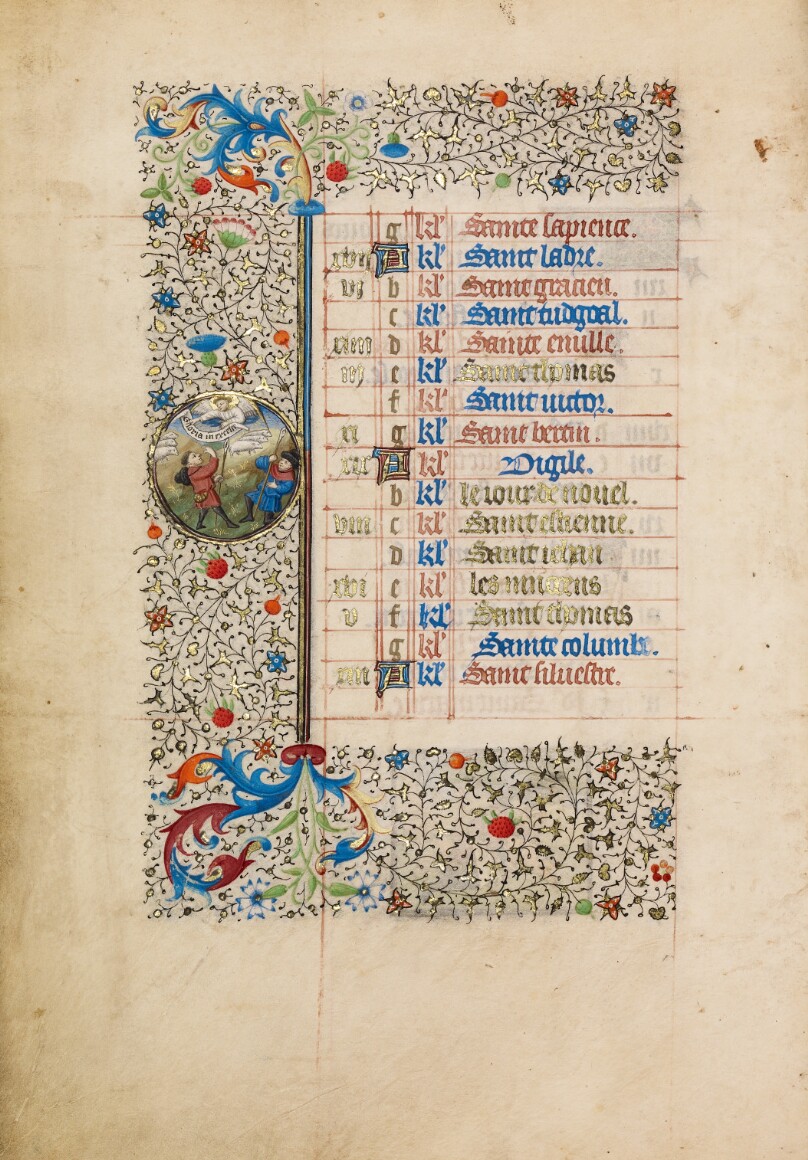 gloria in excelsis
g kl' Sainte sapience.
xvii A kl' Saint ladre.
vi b kl' Saint gracien.
c kl' Saint tudgoal.
xiiii d kl' Sainte
iii e kl' Saint thomas
f kl' Saint victor.
xi g kl' Saint bertin.
xix A kl' Vigile.
b kl' le iour de nouel.
viii c kl' Saint estienne.
d kl' Saint iehan
xvi e kl' les innocens
v f kl' Saint thomas
g kl' Sainte columbe.
xiii A kl' Saint siluestre.